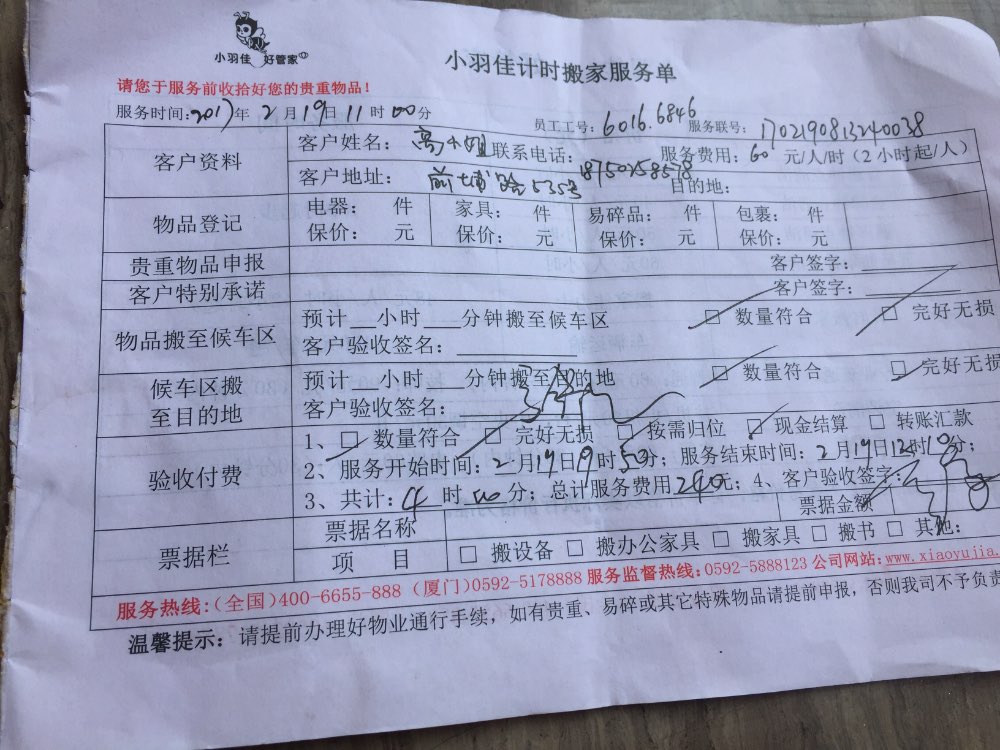 小羽佳 好管家
小羽佳计时搬家服务单
请您于服务前收拾好您的贵重物品!
服务时间:2017年 2月19日11时00分 员工工号:6016.6846 服务联号:1702190813240038
客户资料 客户姓名: 高小姐 联系电话: 18750258578 服务费用: 60 元/人/时(2小时起/人)
客户地址: 前埔路535号 目的地:
物品登记 电器: 件 家具: 件 易碎品: 件 包裹: 件
保价: 元 保价: 元 保价: 元 保价: 元
贵重物品申报 客户签字:
客户特别承诺 客户签字:
物品搬至候车区 预计__小时___分钟搬至候车区 □ 数量符合 □ 完好无损
客户验收签名:
候车区搬至目的地 预计__小时___分钟搬至目的地 □ 数量符合 □ 完好无损
客户验收签名:
验收付费 1、□ 数量符合 □ 完好无损 □ 按需归位 □ 现金结算 □ 转账汇款
2、服务开始时间: 2月19日 时50分; 服务结束时间: 2月19日12时10分;
3、共计: 4时 分; 总计服务费用240元; 4、客户验收签字:
票据栏 票据名称 票据金额
项 目 □ 搬设备 □ 搬办公家具 □ 搬家具 □ 搬书 □ 其他:
服务热线:(全国)400-6655-888 (厦门)0592-5178888 服务监督热线:0592-5888123 公司网站:www.xiaoyujia.
温馨提示: 请提前办理好物业通行手续, 如有贵重、易碎或其它特殊物品请提前申报, 否则我司不予负责